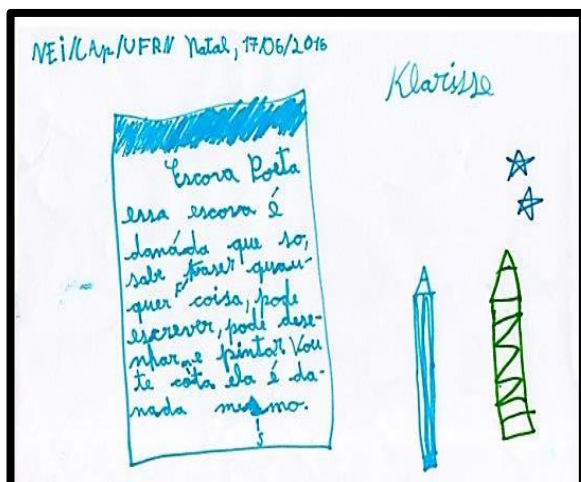 NEI/CAp/UFRN Natal, 17/06/2016
Klarisse
Escova Poeta
essa escova é
danáda que so,
sabe fraser quau-
quer coisa, pode
escrever, pode dese-
nhar, e pintar Vou
te cota ela é da-
nada mesmo.
s